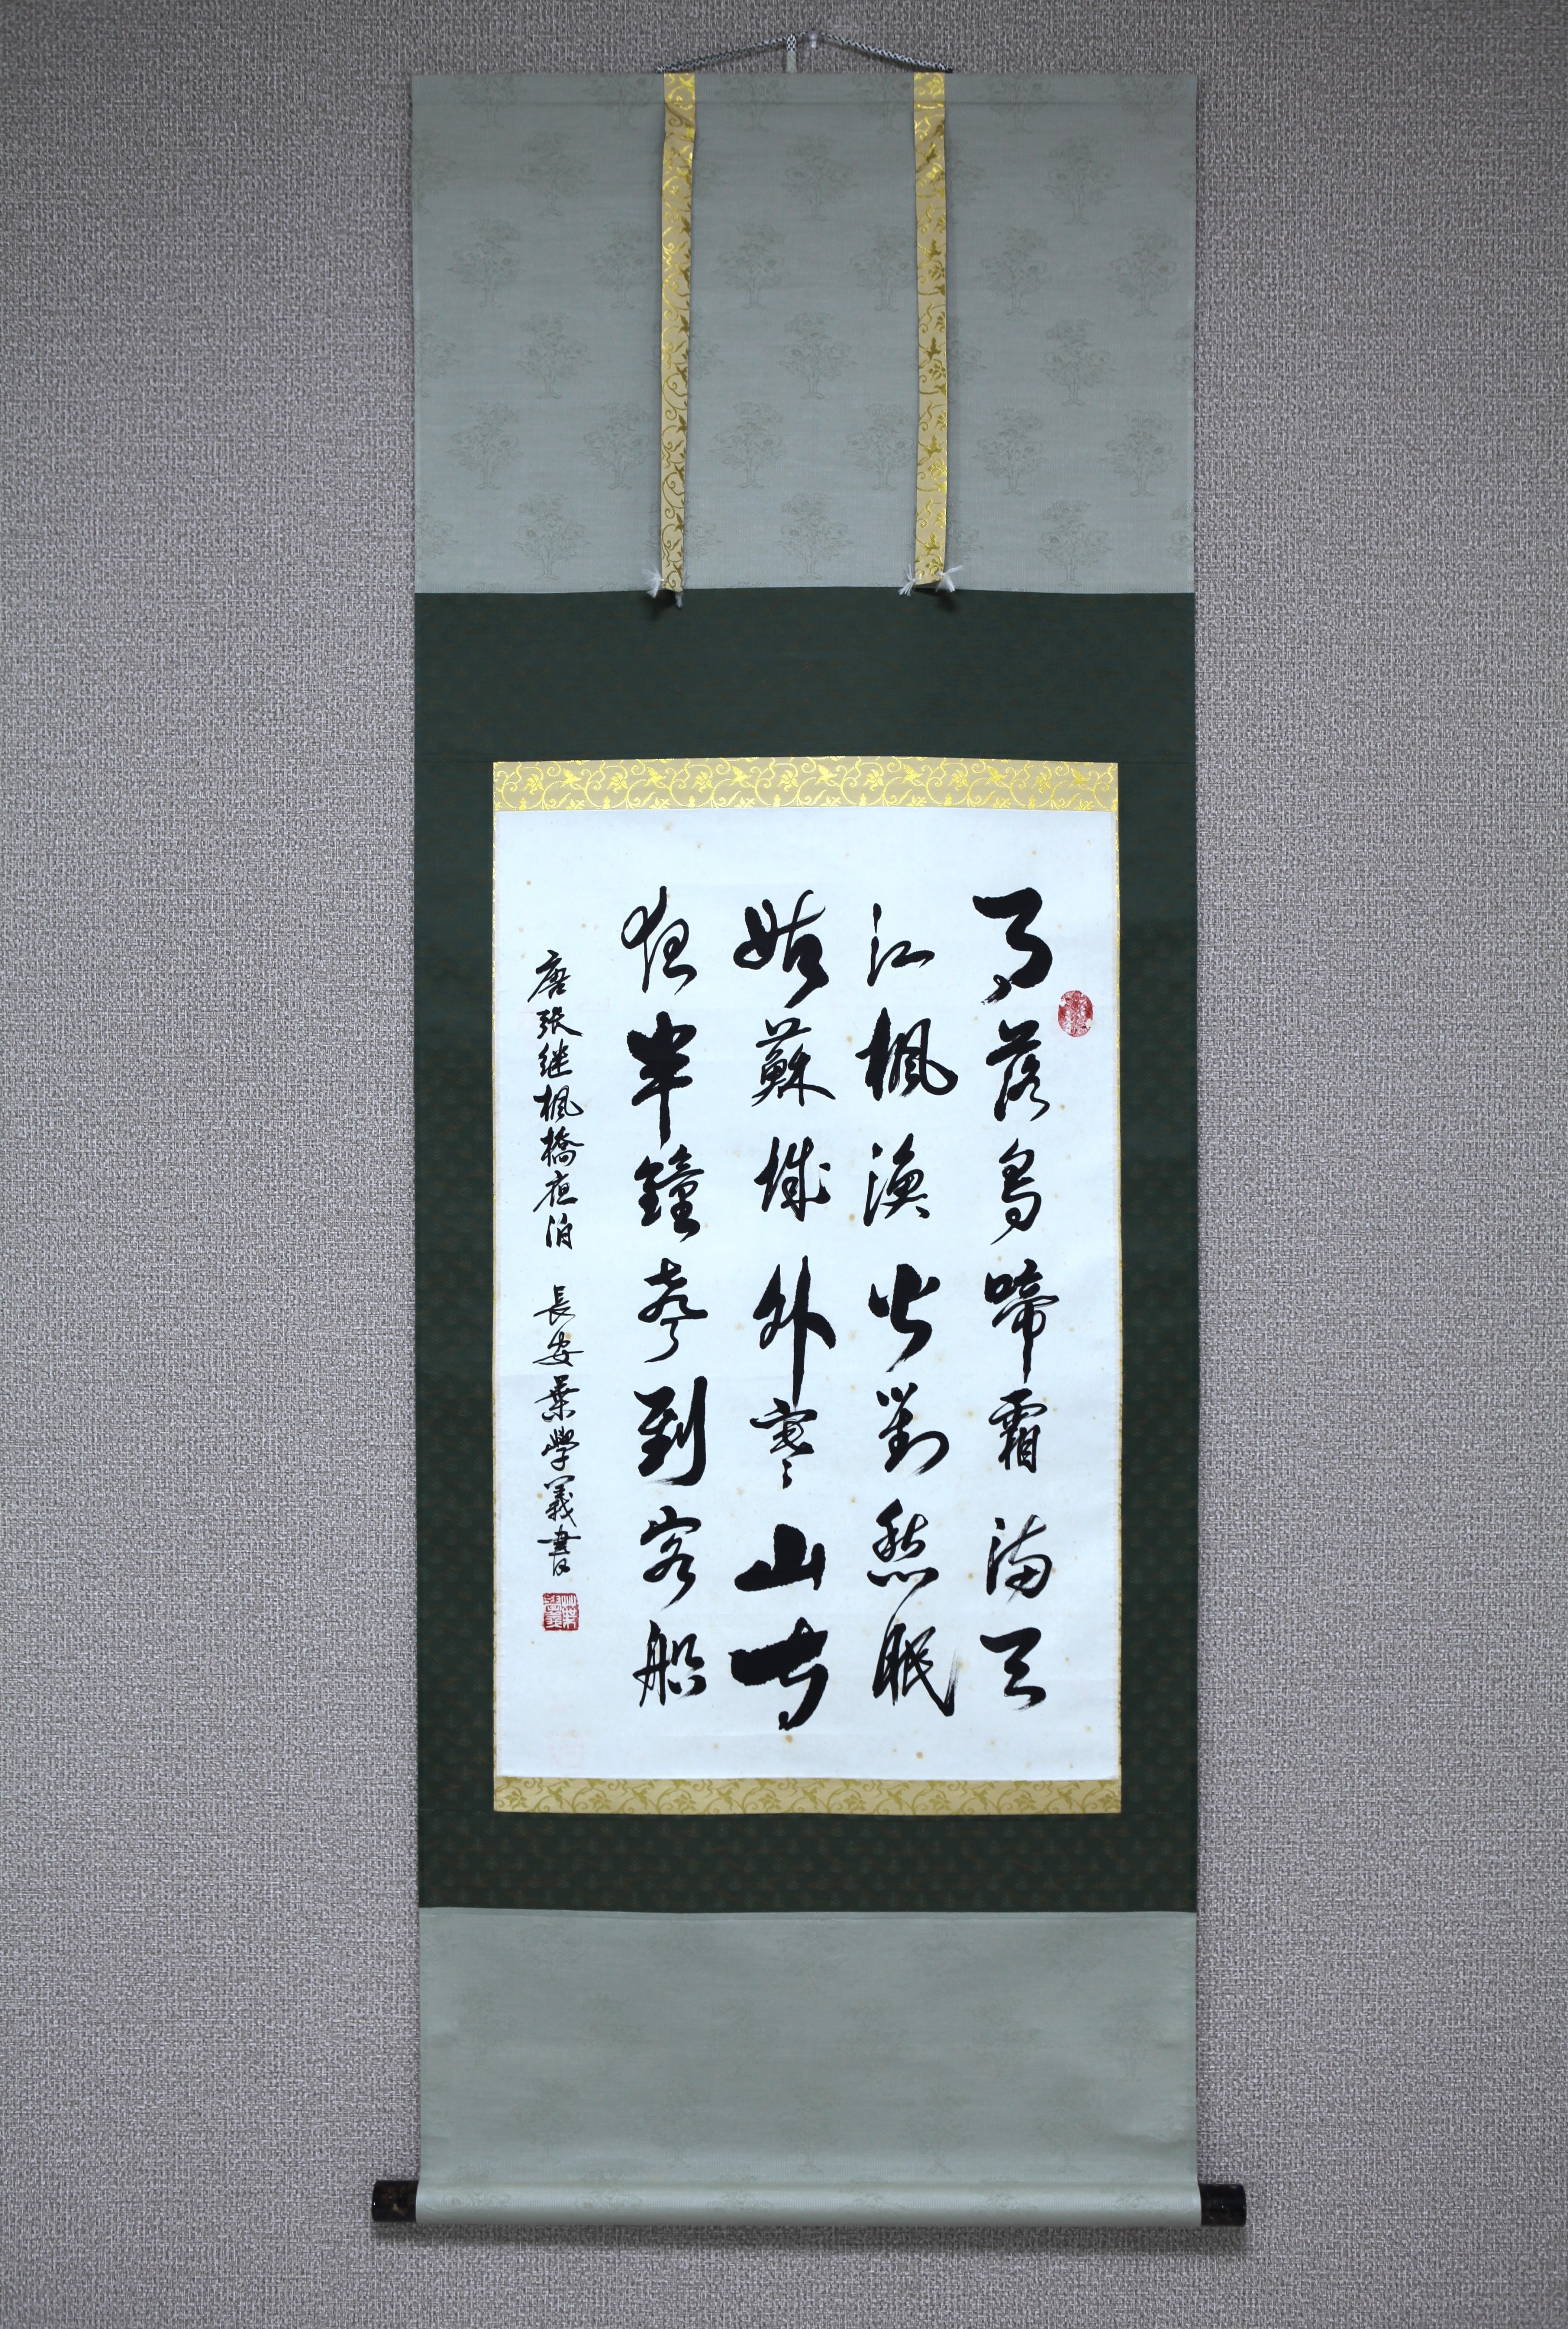 月落烏啼霜滿天
江楓漁火對愁眠
姑蘇城外寒山寺
夜半鐘聲到客船
唐張継楓橋夜泊 長安葉學義書